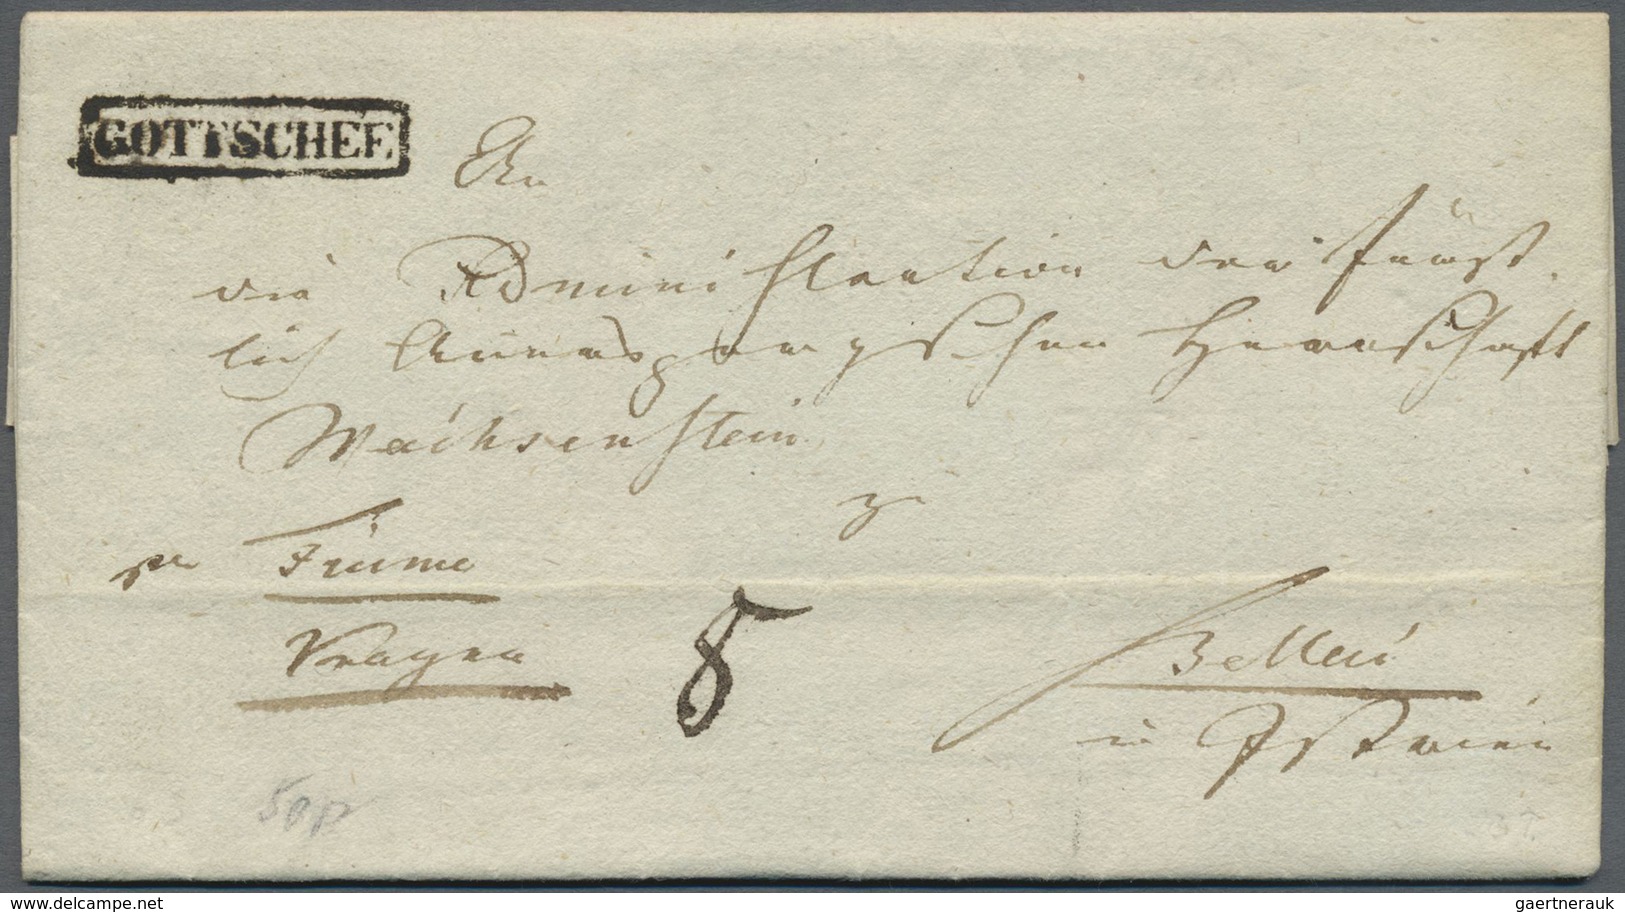 GOTTSCHEE
An
die Administration der Fürst
lich Auerspergischen Herrschaft
Wachsenstein
zu
pr Fiume
8
Bellai
in Istrien
50
delcampe.net
gaertnerauk